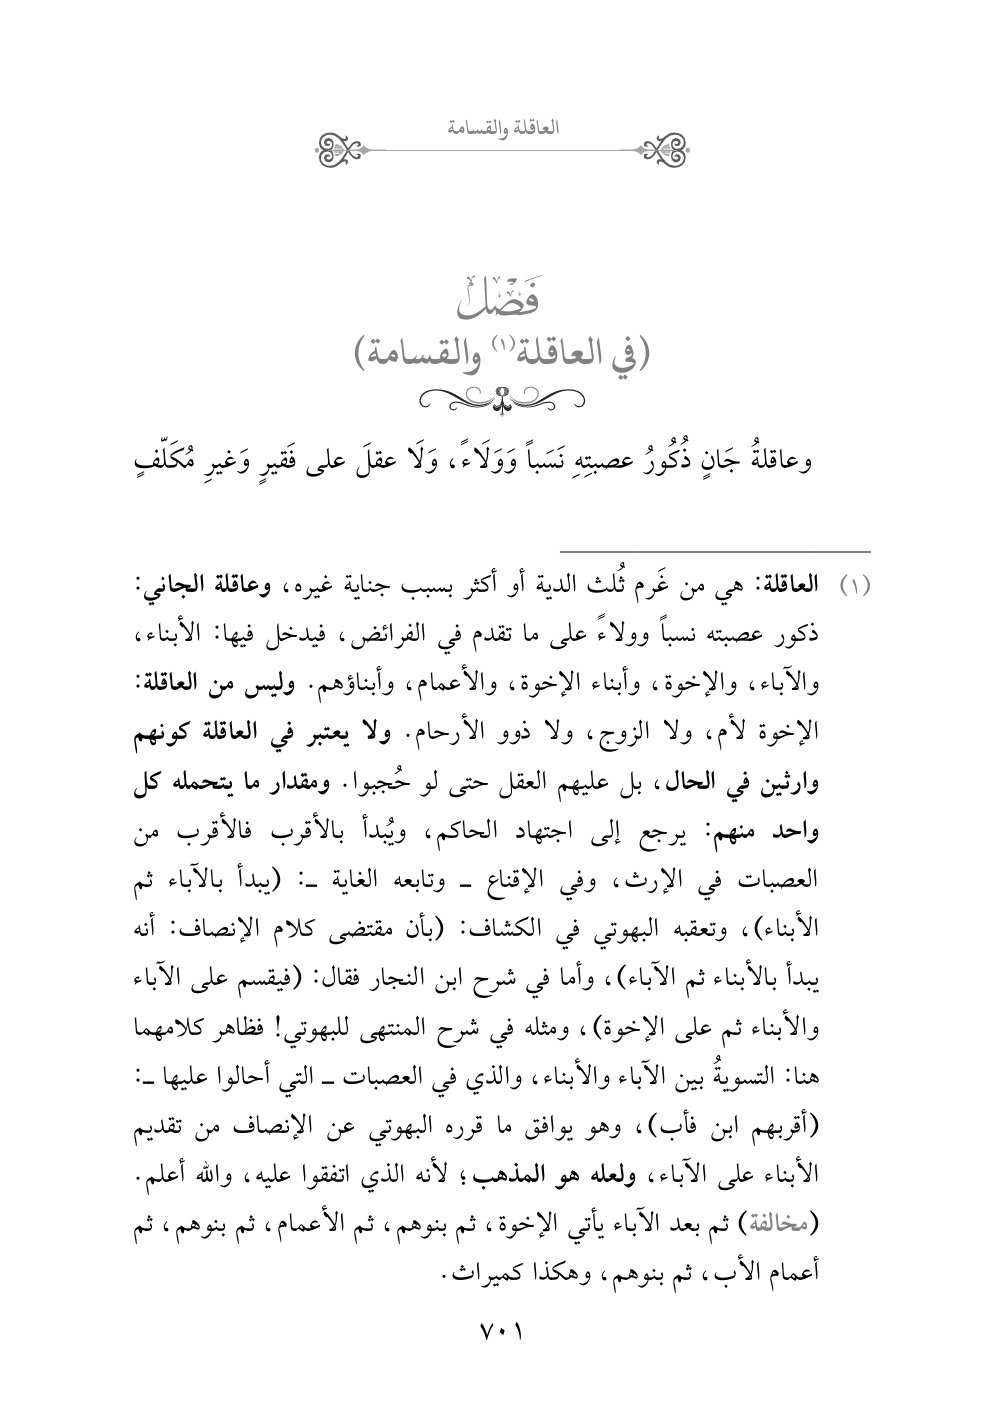 العاقلة والقسامة
فَصْل
(في العاقلة(١) والقسامة)
وعاقلةُ جَانٍ ذُكُورُ عصبتِهِ نَسَباً وَوَلَاءً، وَلَا عقلَ على فَقيرٍ وَغيرِ مُكَلّفٍ
(١) العاقلة: هي من غَرم ثُلث الدية أو أكثر بسبب جناية غيره، وعاقلة الجاني:
ذكور عصبته نسباً وولاءً على ما تقدم في الفرائض، فيدخل فيها: الأبناء،
والآباء، والإخوة، وأبناء الإخوة، والأعمام، وأبناؤهم. وليس من العاقلة:
الإخوة لأم، ولا الزوج، ولا ذوو الأرحام. ولا يعتبر في العاقلة كونهم
وارثين في الحال، بل عليهم العقل حتى لو حُجبوا. ومقدار ما يتحمله كل
واحد منهم: يرجع إلى اجتهاد الحاكم، ويُبدأ بالأقرب فالأقرب من
العصبات في الإرث، وفي الإقناع ــ وتابعه الغاية ــ: (يبدأ بالآباء ثم
الأبناء)، وتعقبه البهوتي في الكشاف: (بأن مقتضى كلام الإنصاف: أنه
يبدأ بالأبناء ثم الآباء)، وأما في شرح ابن النجار فقال: (فيقسم على الآباء
والأبناء ثم على الإخوة)، ومثله في شرح المنتهى للبهوتي! فظاهر كلامهما
هنا: التسويةُ بين الآباء والأبناء، والذي في العصبات ــ التي أحالوا عليها ــ:
(أقربهم ابن فأب)، وهو يوافق ما قرره البهوتي عن الإنصاف من تقديم
الأبناء على الآباء، ولعله هو المذهب؛ لأنه الذي اتفقوا عليه، والله أعلم.
(مخالفة) ثم بعد الآباء يأتي الإخوة، ثم بنوهم، ثم الأعمام، ثم بنوهم، ثم
أعمام الأب، ثم بنوهم، وهكذا كميراث.
٧٠١